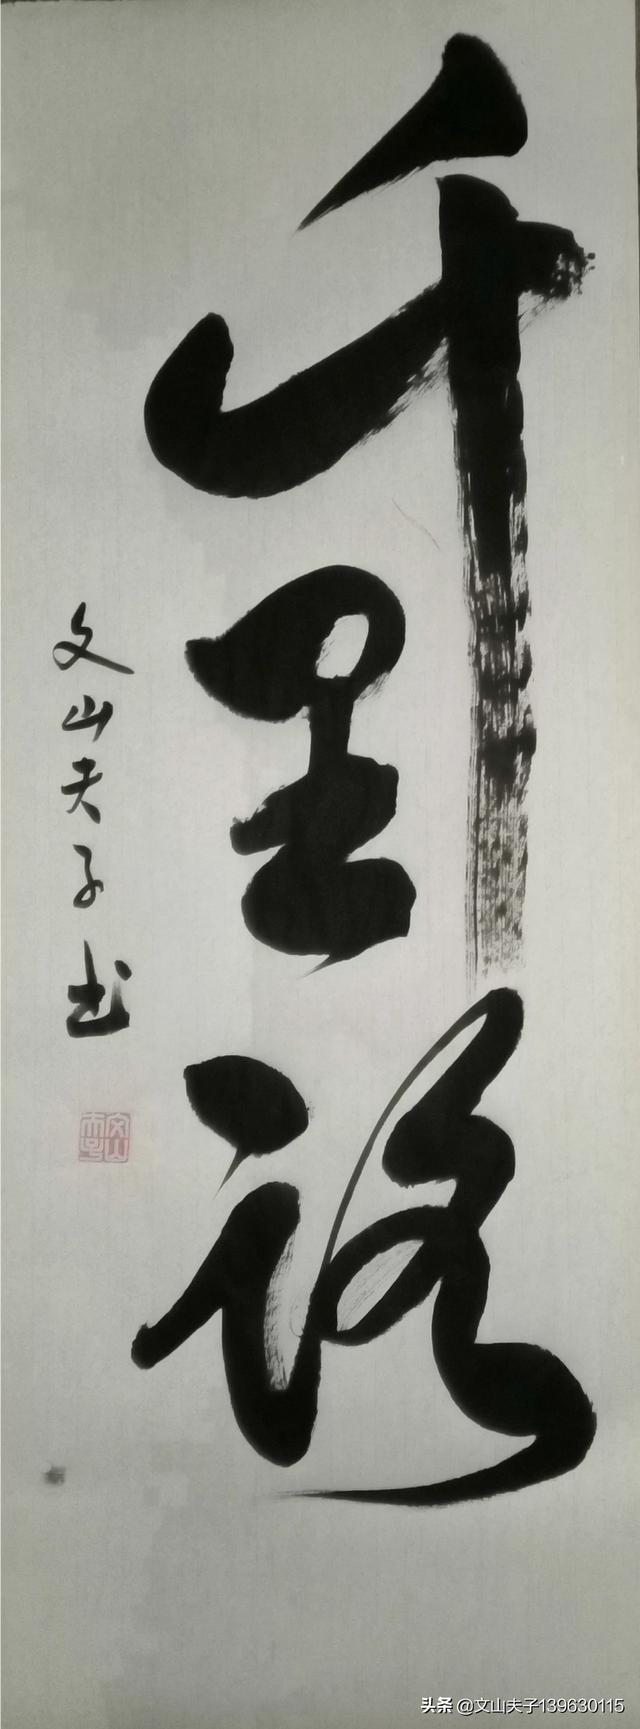 千里路
文山夫子书
文山夫子
头条 @文山夫子139630115